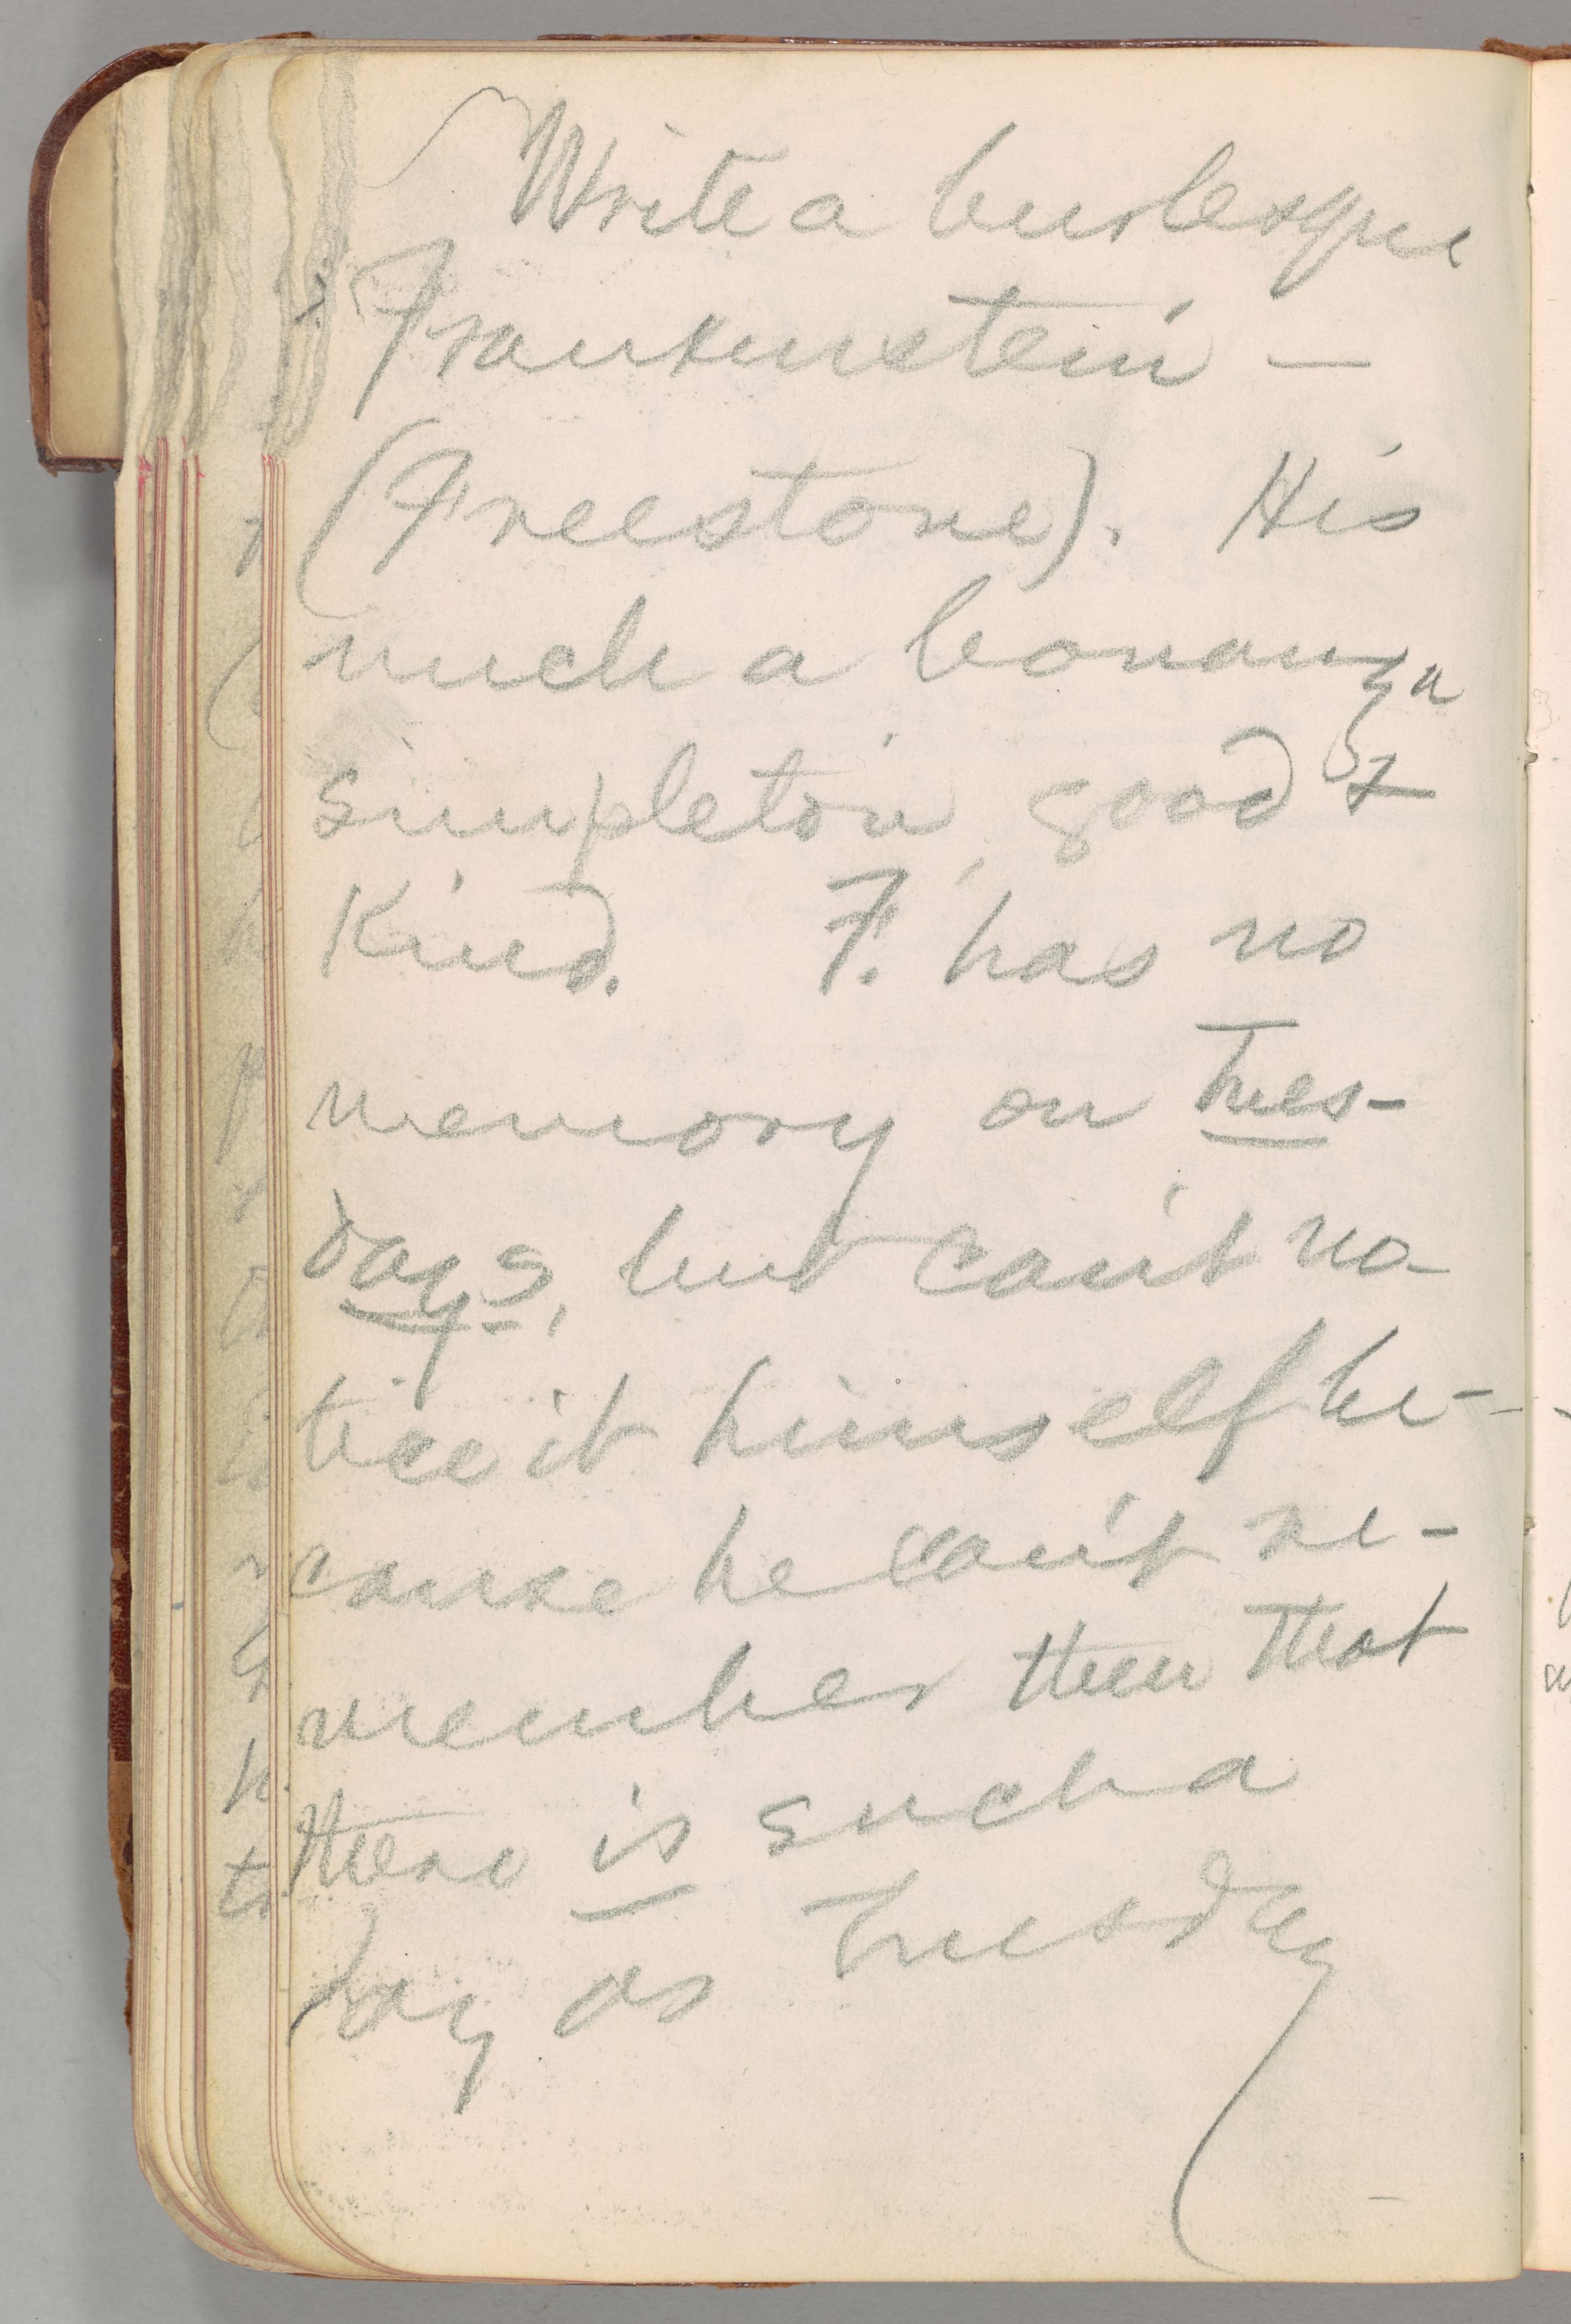 Write a burlesque
Frankenstein —
(Freestone). His
much a bonanza
simpleton, good &
kind. F. has no
memory on Tues-
days, but can't no-
tice it himself be-
cause he can't re-
member then that
there is such a
day as Tuesday